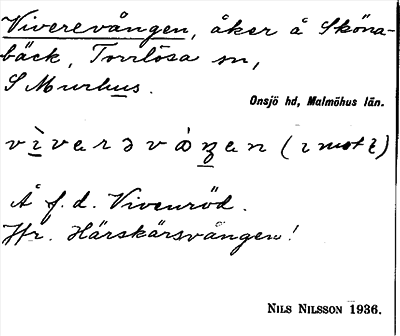 Viverevången, åker å Sköna-
bäck, Torrlösa sn,
S Murhus.
Onsjö hd, Malmöhus län.
vìverəvåŋen (ı mot ꞇ)
Å f.d. Vivenröd.
Jfr. Härskärsvången!
NILS NILSSON 1936.